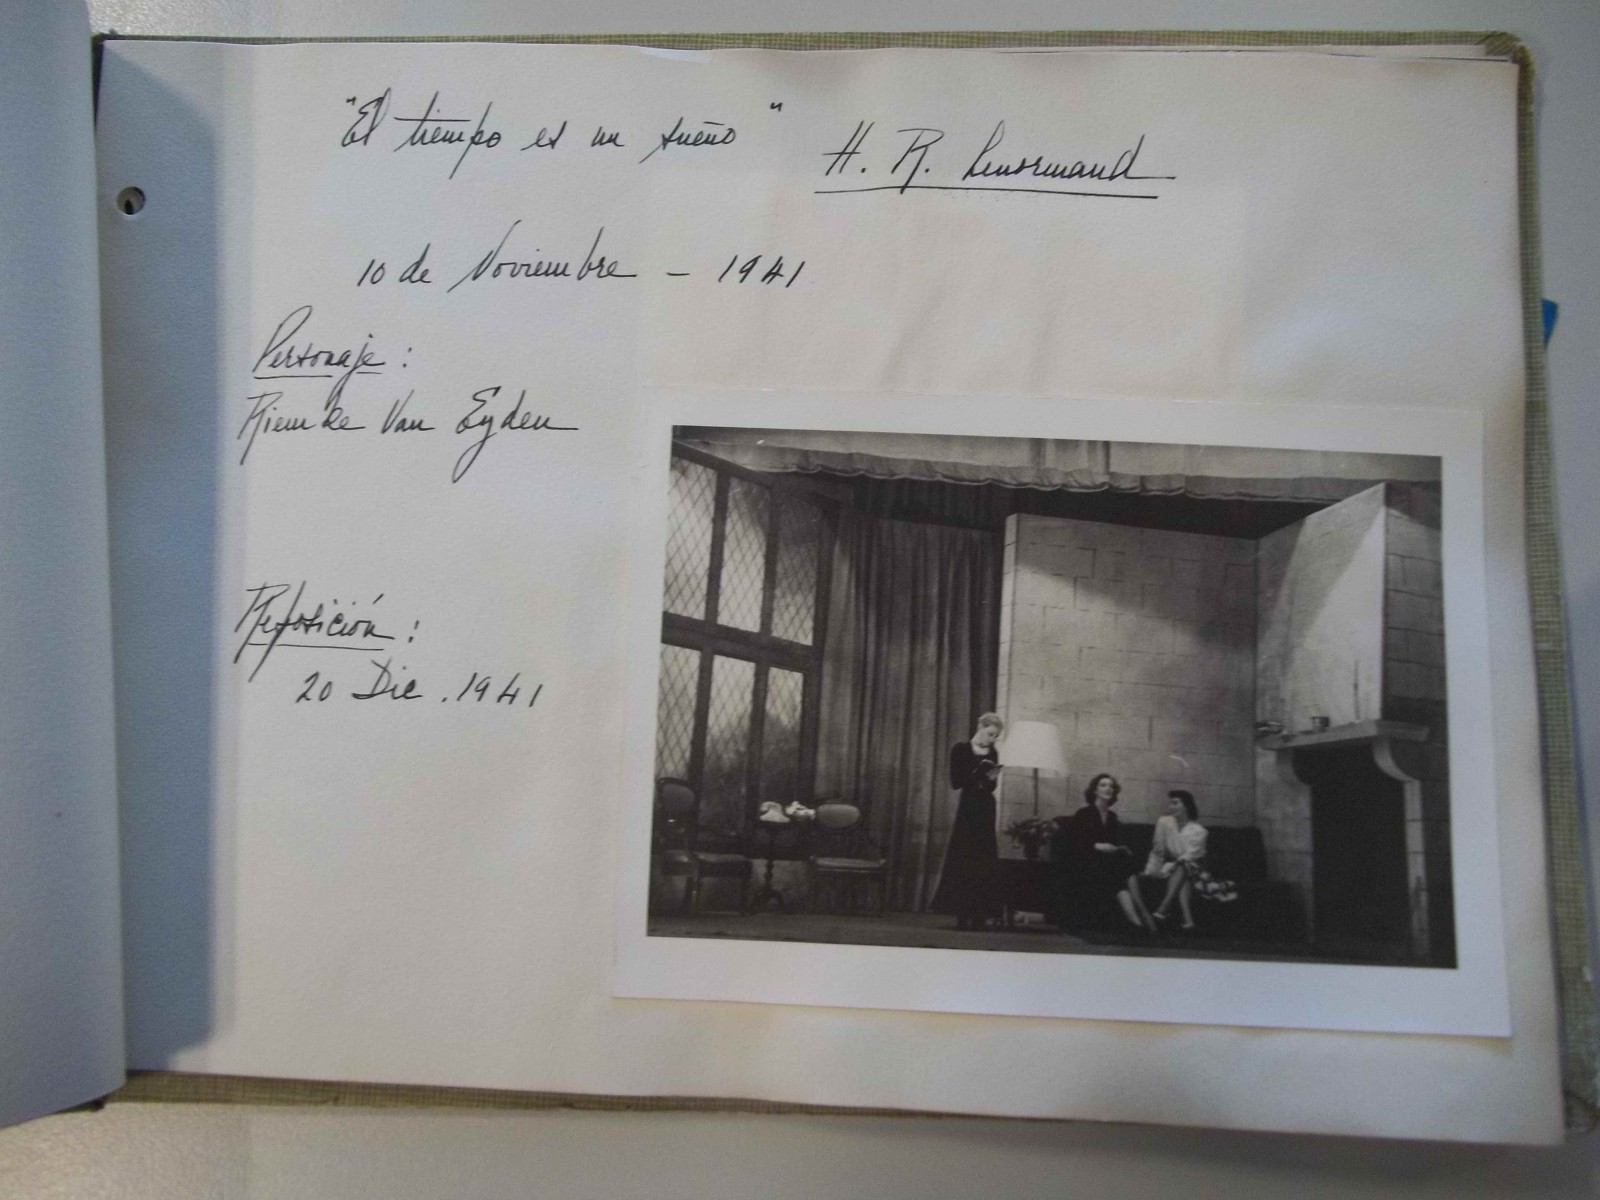 "El tiempo es un sueño"
H. R. Lenormand
10 de Noviembre - 1941
Personaje:
Riemke Van Eyden
Reposición:
20 Dic. 1941